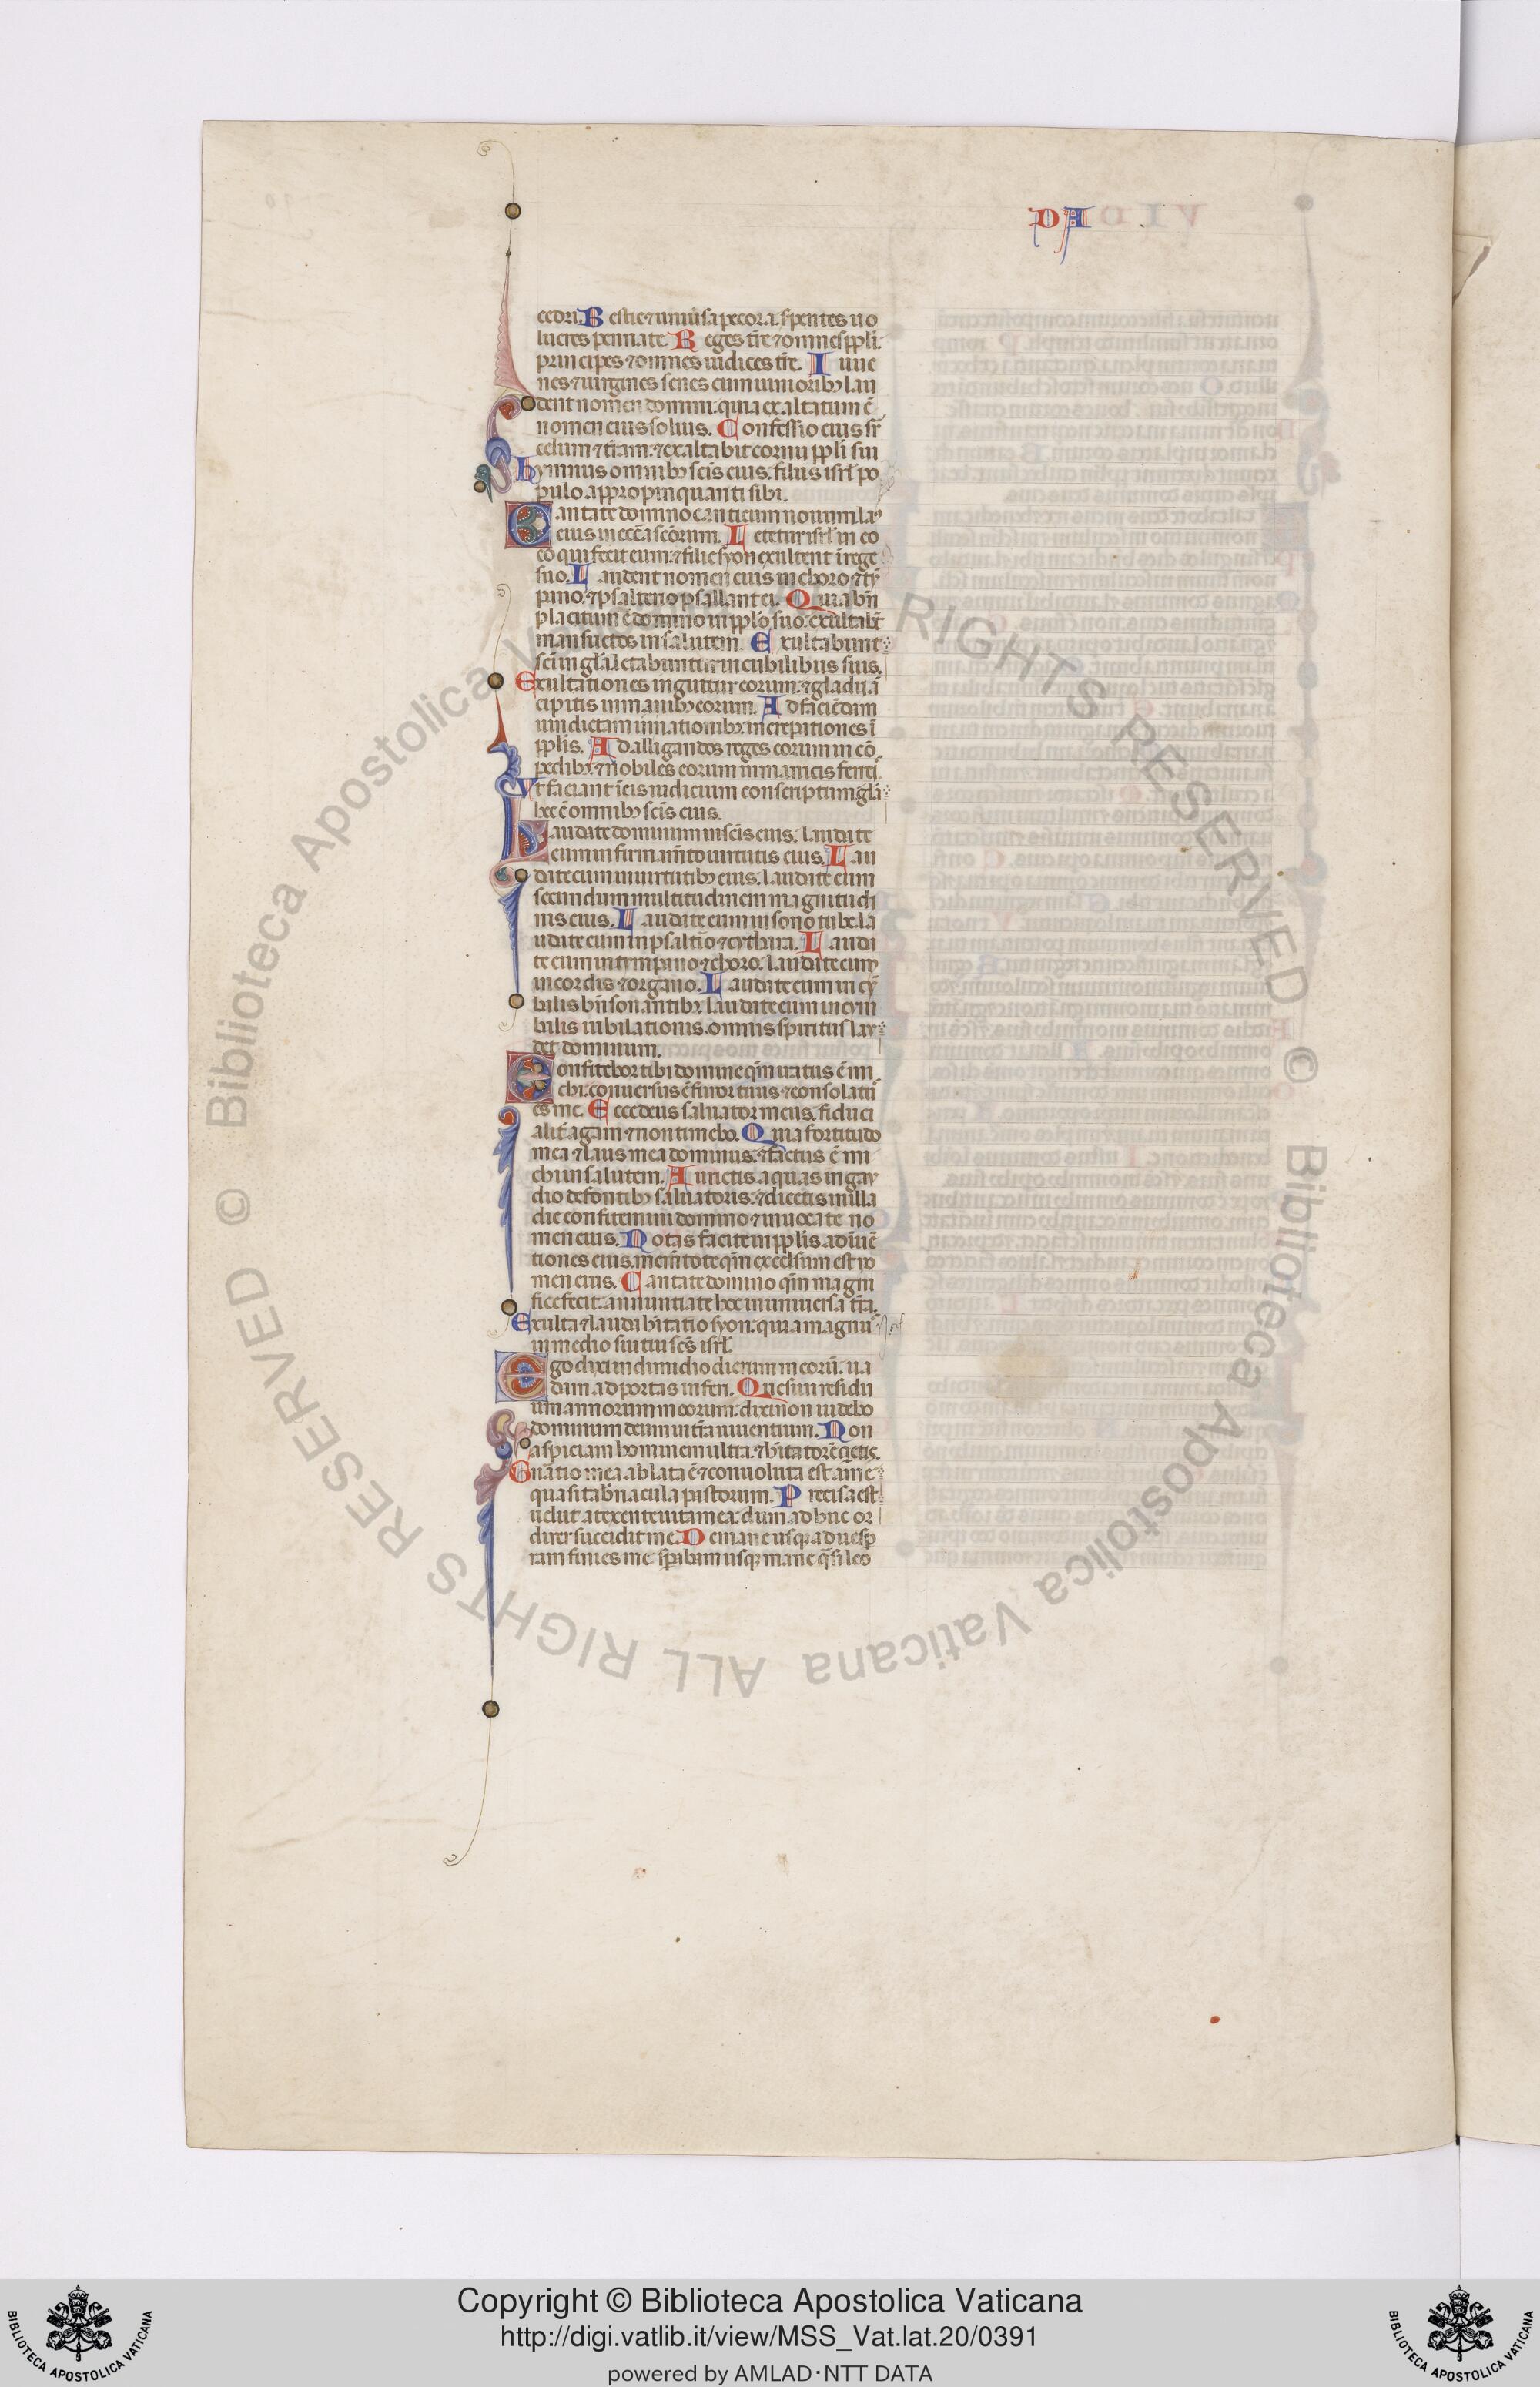 DA
cedri. Bestie ⁊ uniũsa pecora. s̃pentes uo
lucres pennate. Reges tr̃e ⁊ omnes ppl̃i.
principes ⁊ omnes iudices tr̃e. Iuue
nes ⁊ uirgines senes cum iunioribꝫ lau
dent nomen domini. quia exaltatum ẽ
nomen eius solius. Confessio eius sr̃
celum ⁊ tr̃am. ⁊ exaltabit cornu ppl̃i sui
hymnus omnibꝫ sc̃is eius. filiis isrl̃ po
pulo appropinquanti sibi.
Cantate domino canticum nouum. lau
eius in ecc̃a sc̃orum. Letetur isrl̃ in eo
eo qui fecit eum. ⁊ filie syon exultent ĩ rege
suo. Laudent nomen eius in choro. ⁊ tỹ
pino. ⁊ psalterio psallant ei. Quia bñ
placitum ẽ domino in ppl̃o suo. exultabit
mansuetos in salutem. Exultabunt
sc̃i in gl̃a. letabuntur in cubilibus suis.
Exultationes in guttur eorum. ⁊ gladii ã
cipites in manibꝫ eorum. Ad faciẽdam
uindictam in nationibꝫ. increpationes ĩ
ppl̃is. Ad alligandos reges eorum in cõ
pedibꝫ. ⁊ nobiles eorum in manicis ferreis.
Ut faciant ĩ eis iudicium conscriptum. gl̃a
hec ẽ omnibꝫ sc̃is eius.
Laudate dominum in sc̃is eius. laudate
eum in firmam̃to uirtutis eius. Lau
date eum in uirtutibꝫ eius. laudate eum
secundum multitudinem magnitudi
nis eius. Laudate eum in sono tube. la
udate eum in psalt̃io ⁊ cythara. Lauda
te eum in timpano ⁊ choro. laudate eum
in cordis ⁊ organo. Laudate eum in cỹ
balis bñsonantibꝫ. laudate eum in cym
balis iubilationis. omnis spiritus lau
det dominum.
Confitebor tibi domine qm̃ iratus ẽ mi
chi. conuersus ẽ furor tuus ⁊ consolatus
es me. Ecce deus saluator meus. fiduci
alit̃ agam ⁊ non timebo. Quia fortitudo
mea ⁊ laus mea dominus. ⁊ factus ẽ mi
chi in salutem. Haurietis aquas in gau
dio de fontibꝫ saluatoris. ⁊ dicetis in illa
die confitemini domino ⁊ inuocate no
men eius. Notas facite in ppl̃is adĩuẽ
tiones eius. mem̃tote qm̃ excelsum est no
men eius. Cantate domino qm̃ magni
fice fecit. annuntiate hoc in uniuersa tr̃a.
Exulta ⁊ lauda h̃itatio syon. quia magnus
in medio tui sc̃s isrl̃.
Ego dixi in dimidio dierum meorũ. ua
dam ad portas inferi. Quesiui residu
um annorum meorum. dixi non uidebo
dominum deum in tr̃a uiuentium. Non
aspiciam hominem ultra. ⁊ h̃itatorẽ q̃etis.
Gñatio mea ablata ẽ ⁊ conuoluta est a me
quasi tab̃nacula pastorum. Precisa est
uelut a texente uita mea. dum adhuc or
direr succidit me. De mane usqꝫ ad uesp̃
ram finies me. sperabam usqꝫ mane q̃si leo
Copyright © Biblioteca Apostolica Vaticana
http://digi.vatlib.it/view/MSS_Vat.lat.20/0391
powered by AMLAD·NTT DATA
BIBLIOTECA APOSTOLICA VATICANA
BIBLIOTECA APOSTOLICA VATICANA
© Biblioteca Apostolica Vaticana ALL RIGHTS RESERVED
© Biblioteca Apostolica Vaticana ALL RIGHTS RESERVED